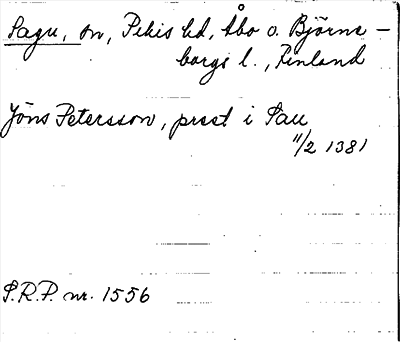 Sagu, sn, Pikis hd, Åbo o. Björne-
borgs l., Finland
Jöns Petersson, prest i Sau
11/2 1381
S.R.P. nr. 1556